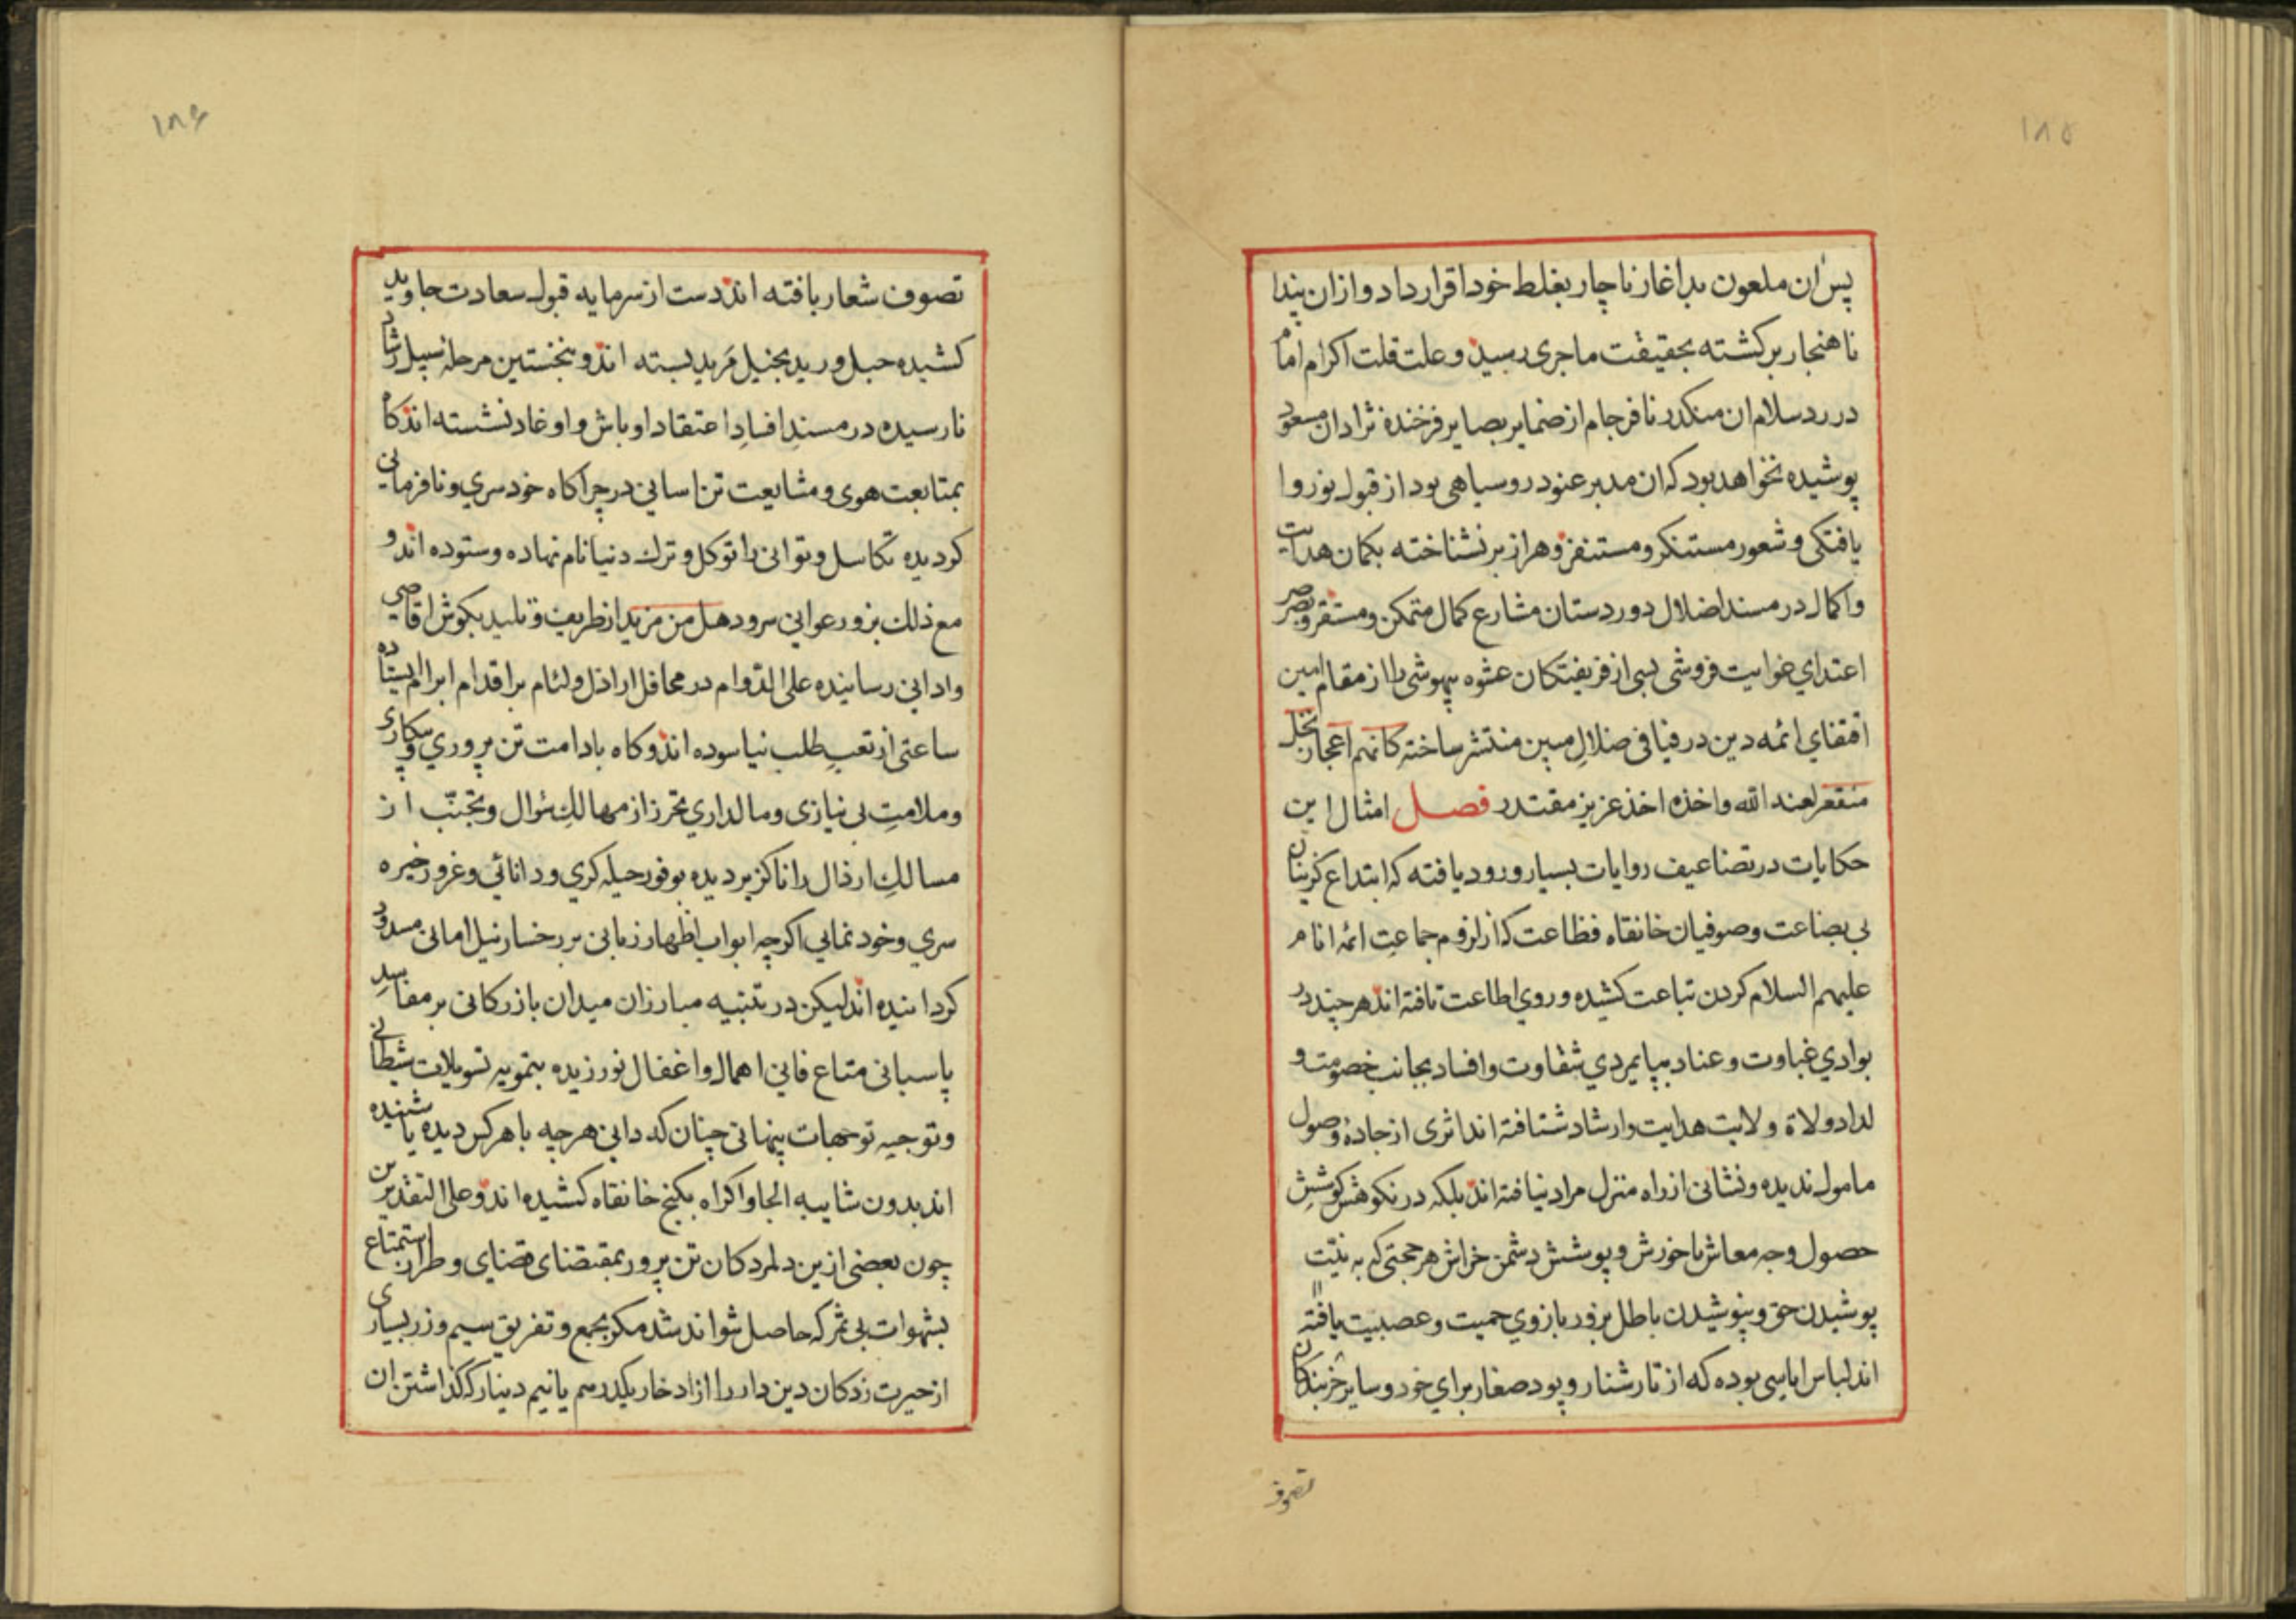 ۱۸۵
پس ان ملعون بداغاز ناچار بغلط خود اقرار داد و ازان پندا
ناهنجار برکشته بحقیقت ماجری رسید و علت قلت اکرام امام
در رد سلام ان منکدر نافرجام از ضمایر بصایر فرخنده نژادان مسعود
پوشیده نخواهد بود که ان مدبر عنود روسیاهی بود از قبول نور وا
یافتکی و شعور مستنکر و مستنفر و هر از بر نشناخته بکمان هدایت
واکمال در مسند اضلال دوردستان مشارع کمال متمکن و مستقر و بصر
اعتدای غوایت فروشی بسی از فریفتکان عشوه بیهوشی را از مقام امین
اقتفای ائمه دین در فیافی ضلال مبین منتشر ساخته کانهم اعجاز نخل
منقعر لعنه الله واخذه اخذ عزیز مقتدر فصل امثال این
حکایات در تضاعیف روایات بسیار ورود یافته که ابتداع کزینان
بی بضاعت و صوفیان خانقاه فظاعت که از لزوم جماعت ائمه انام
علیهم السلام کردن تباعت کشیده و روی اطاعت تافته اند هر چند در
بوادی غباوت و عناد بپایمردی شقاوت و افساد بجانب خصومت و
لداد ولاة ولایت هدایت و ارشاد شتافته اند اثری از جاده وصول
مامول ندیده و نشانی از راه منزل مراد نیافته اند بلکه در نکوهش کوشش
حصول وجه معاش با خورش و پوشش دشمن خراش هر حجتی که به نیت
پوشیدن حق و بنوشیدن باطل بزور بازوی حمیت و عصبیت یافته
اند لباس ایاسی بوده که از تار شنار و پود صغار برای خود و سایر خربندکان
تصوف
۱۸۶
تصوف شعار بافته اند دست از سرمایه قبول سعادت جاوید
کشیده حبل ورید بخیل مرید بسته اند و بنخستین مرحله سبیل رشاد
نارسیده در مسند افساد اعتقاد اوباش و اوغاد نشسته اند کاه
بمتابعت هوی و مشایعت تن اسانی در چراکاه خودسری و نافرمانی
کردیده تکاسل و توانی را توکل و ترك دنیا نام نهاده و ستوده اند و
مع ذلك بزور عوانی سرود هل من مزید از طریف و تلید بکوش اقاصی
و ادانی رسانیده علی الدوام در محافل اراذل و لئام بر اقدام ابرام ایستاده
ساعتی از تعب طلب نیاسوده اند و کاه بادامت تن پروری و بیکاری
و ملامت بی نیازی و مالداری تحرز از مهالك سؤال و تجنب از
مسالك ارذال را ناکزیر دیده بوفور حیله کری و دانائی و غرور خیره
سری و خودنمایی اکرچه ابواب اظهار زبانی بر رخسار نیل امانی مسدود
کردانیده اند لیکن در تنبیه مبارزان میدان بازرکانی بر مفاسد
پاسبانی متاع فانی اهمال و اغفال نورزیده بتمویه تسویلات شیطانی
و توجیه توجهات پنهانی چنان که دانی هرچه با هر کس دیده یا شنیده
اند بدون شایبه الجا و اکراه بکنج خانقاه کشیده اند و علی التقدیرین
چون بعضی ازین دلمردکان تن پرور بمقتضای قضای وطر از استمتاع
بشهوات بی ثمر که حاصل نتواند شد مکر بجمع و تفریق سیم و زر بسیاری
از حیرت زدکان دین دار را از ادخار یکدرهم یا نیم دینار که کذاشتن ان